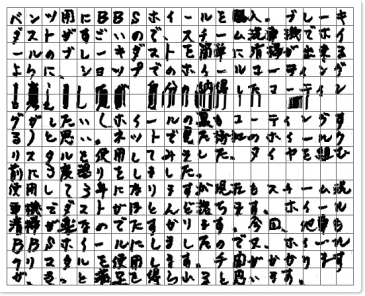 ベンツ用にBBSホイールを購入。ブレーキ
ダストがすごいので、スチーム洗車機でホイ
ールのブレーキダストを簡単に清掃が出来る
ように、ショップでのホイールコーティング
自分の納得したコーティン
グがしたい(ホイールの裏もコーティングす
る)と思い、ネットで見た のホイールク
リスタルを使用してみました。タイヤを組む
前に3度塗りをしました。
使用して3年になりますが現在もスチーム洗
車機でダストがほとんど落ちます。ホイール
清掃が楽なのでたすかります。今回、他車も
BBSホイールにしましたので又、ホイール
クリスタルを使用します。手間がかかります
が、きっと満足を得られると思います。